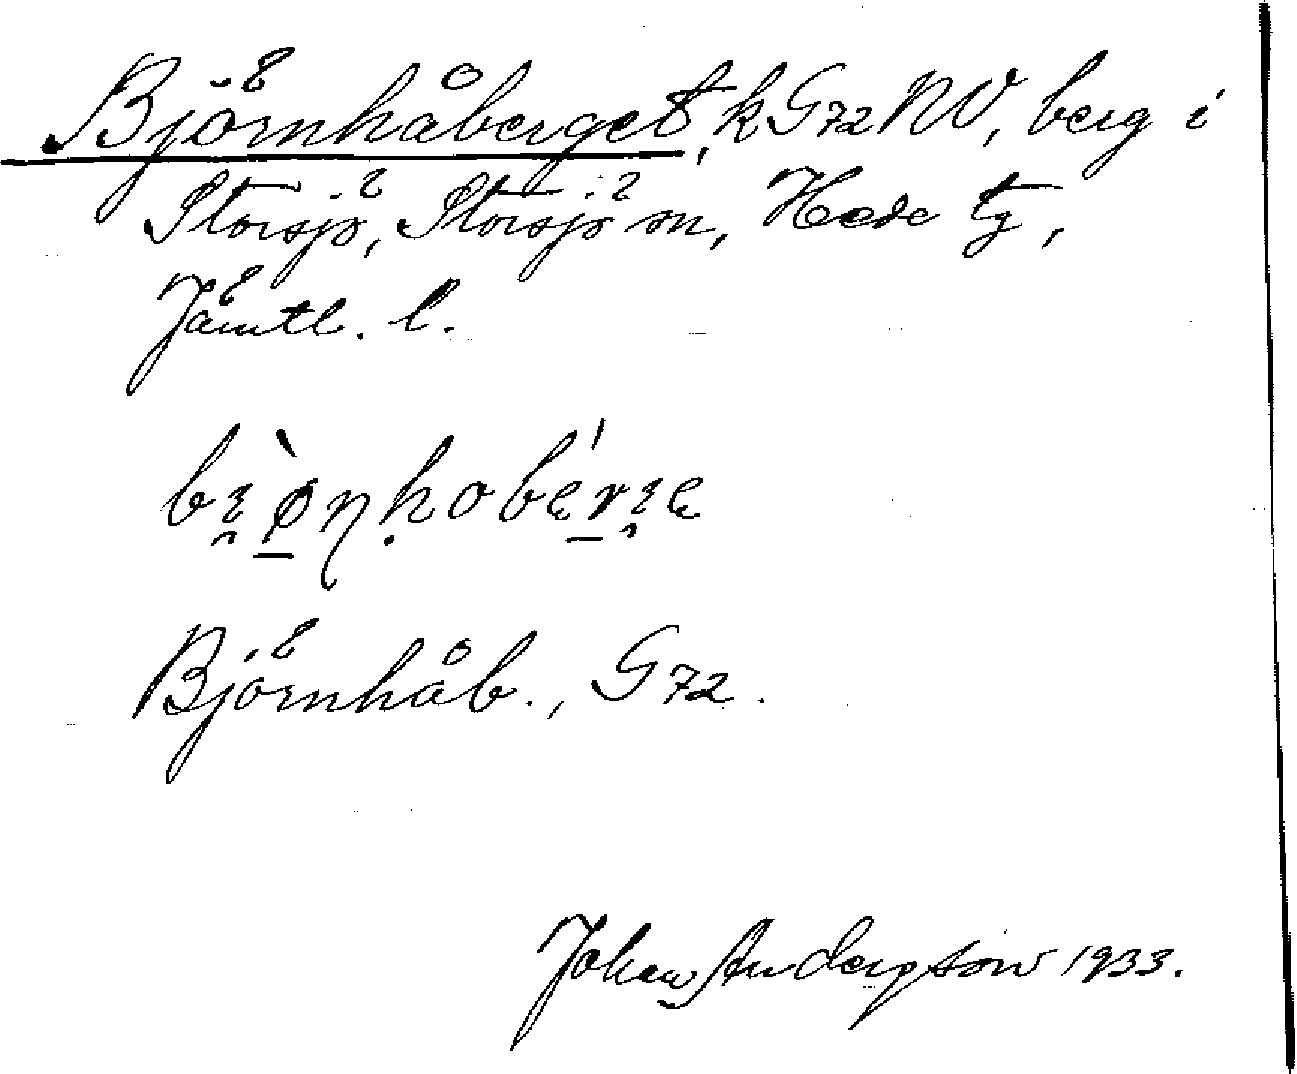 Björnhåberget, k G72 NV, berg i
Storsjö, Storsjö sn, Hede tg,
Jämtl. l.
Björnhåb., G72.
Johan Andersson 1933.